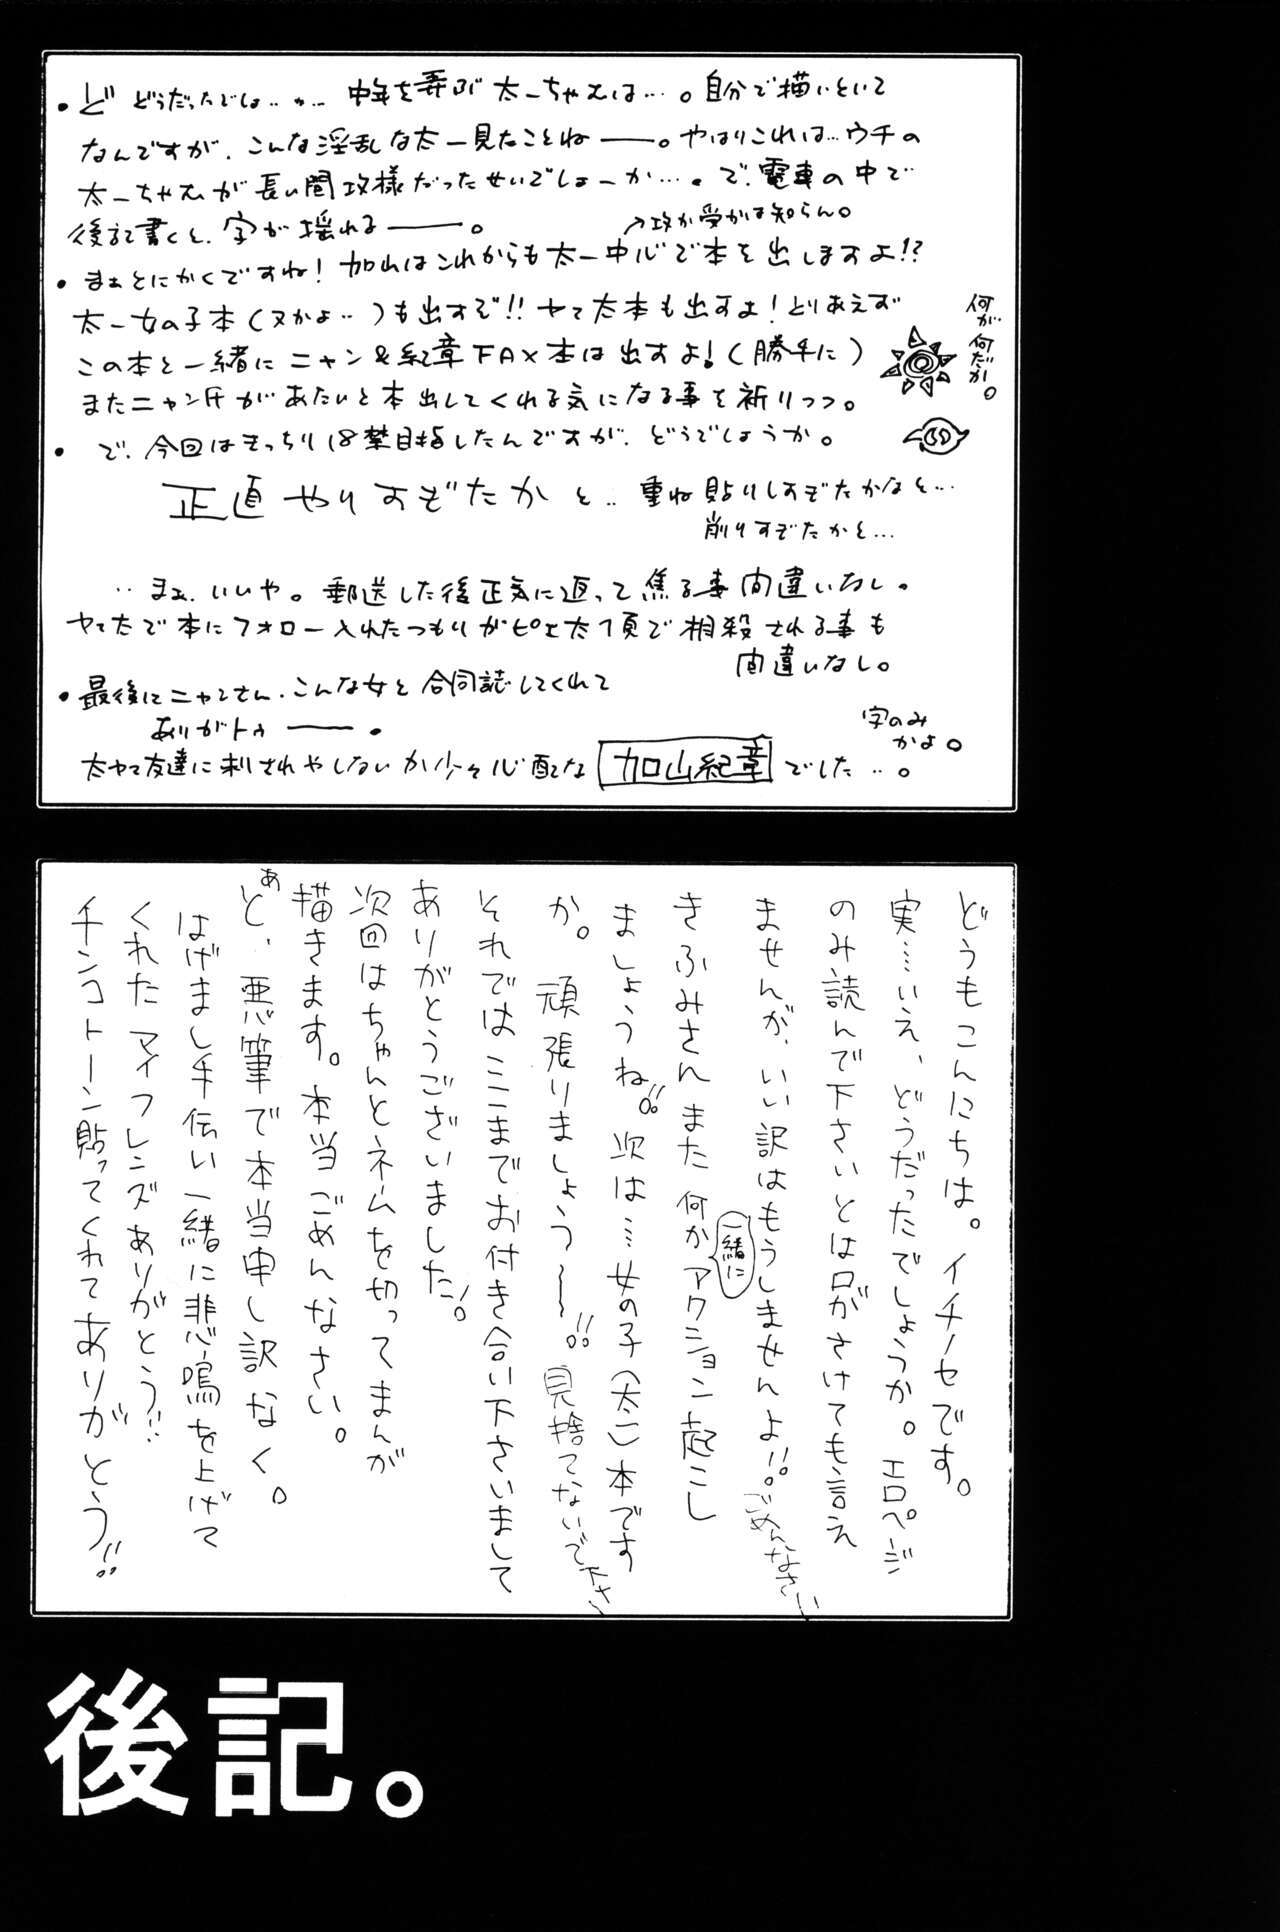 ・ど どうだったでしょ‥か… 中年を弄ぶ太一ちゃむは…。自分で描いといて
なんですが、こんな淫乱な太一見たことねーー。やはりこれは…ウチの
太一ちゃむが長い間攻様だったせいでしょーか…。で、電車の中で
後記書くと、字が揺れるーー。
→攻か受かは知らん。
・まぁとにかくですね!加山はこれからも太一中心で本を出しますよ!?
太一女の子本(又かよ‥)も出すぞ!!ヤマ太本も出すよ!とりあえず
この本と一緒にニャン&紀章FAX本は出すよ!(勝手に)
またニャン氏があたいと本出してくれる気になる事を祈りつつ。
何が何だか。
・で、今回はきっちり18禁目指したんですが、どうでしょうか。
正直やりすぎたかと‥重ね貼りしすぎたかなと…
削りすぎたかと…
‥まぁ、いいや。郵送した後正気に返って焦る事間違いなし。
ヤマ太で本にフォロー入れたつもりがピエ太1頁で相殺される事も
間違いなし。
・最後にニャンさん、こんな女と合同誌してくれて
ありがトゥーー。
字のみかよ。
太ヤマ友達に刺されやしないか少々心配な 加山紀章 でした‥。
どうもこんにちは。イチノセです。
実…いえ、どうだったでしょうか。エロページ
のみ読んで下さいとは口がさけても言え
ませんが、いい訳はもうしませんよ!!。ごめんなさい
きふみさんまた何か一緒にアクション起こし
ましょうね!!。次は…女の子(太一)本です
か。頑張りましょう〜〜!!見捨てないで下さい
それではここまでお付き合い下さいまして
ありがとうございました!。
次回はちゃんとネームを切ってまんが
描きます。本当ごめんなさい。
あと、悪筆で本当申し訳なく。
はげまし手伝い一緒に悲鳴を上げて
くれたマイフレンズありがとう!!
チンコトーン貼ってくれてありがとう!!
後記。